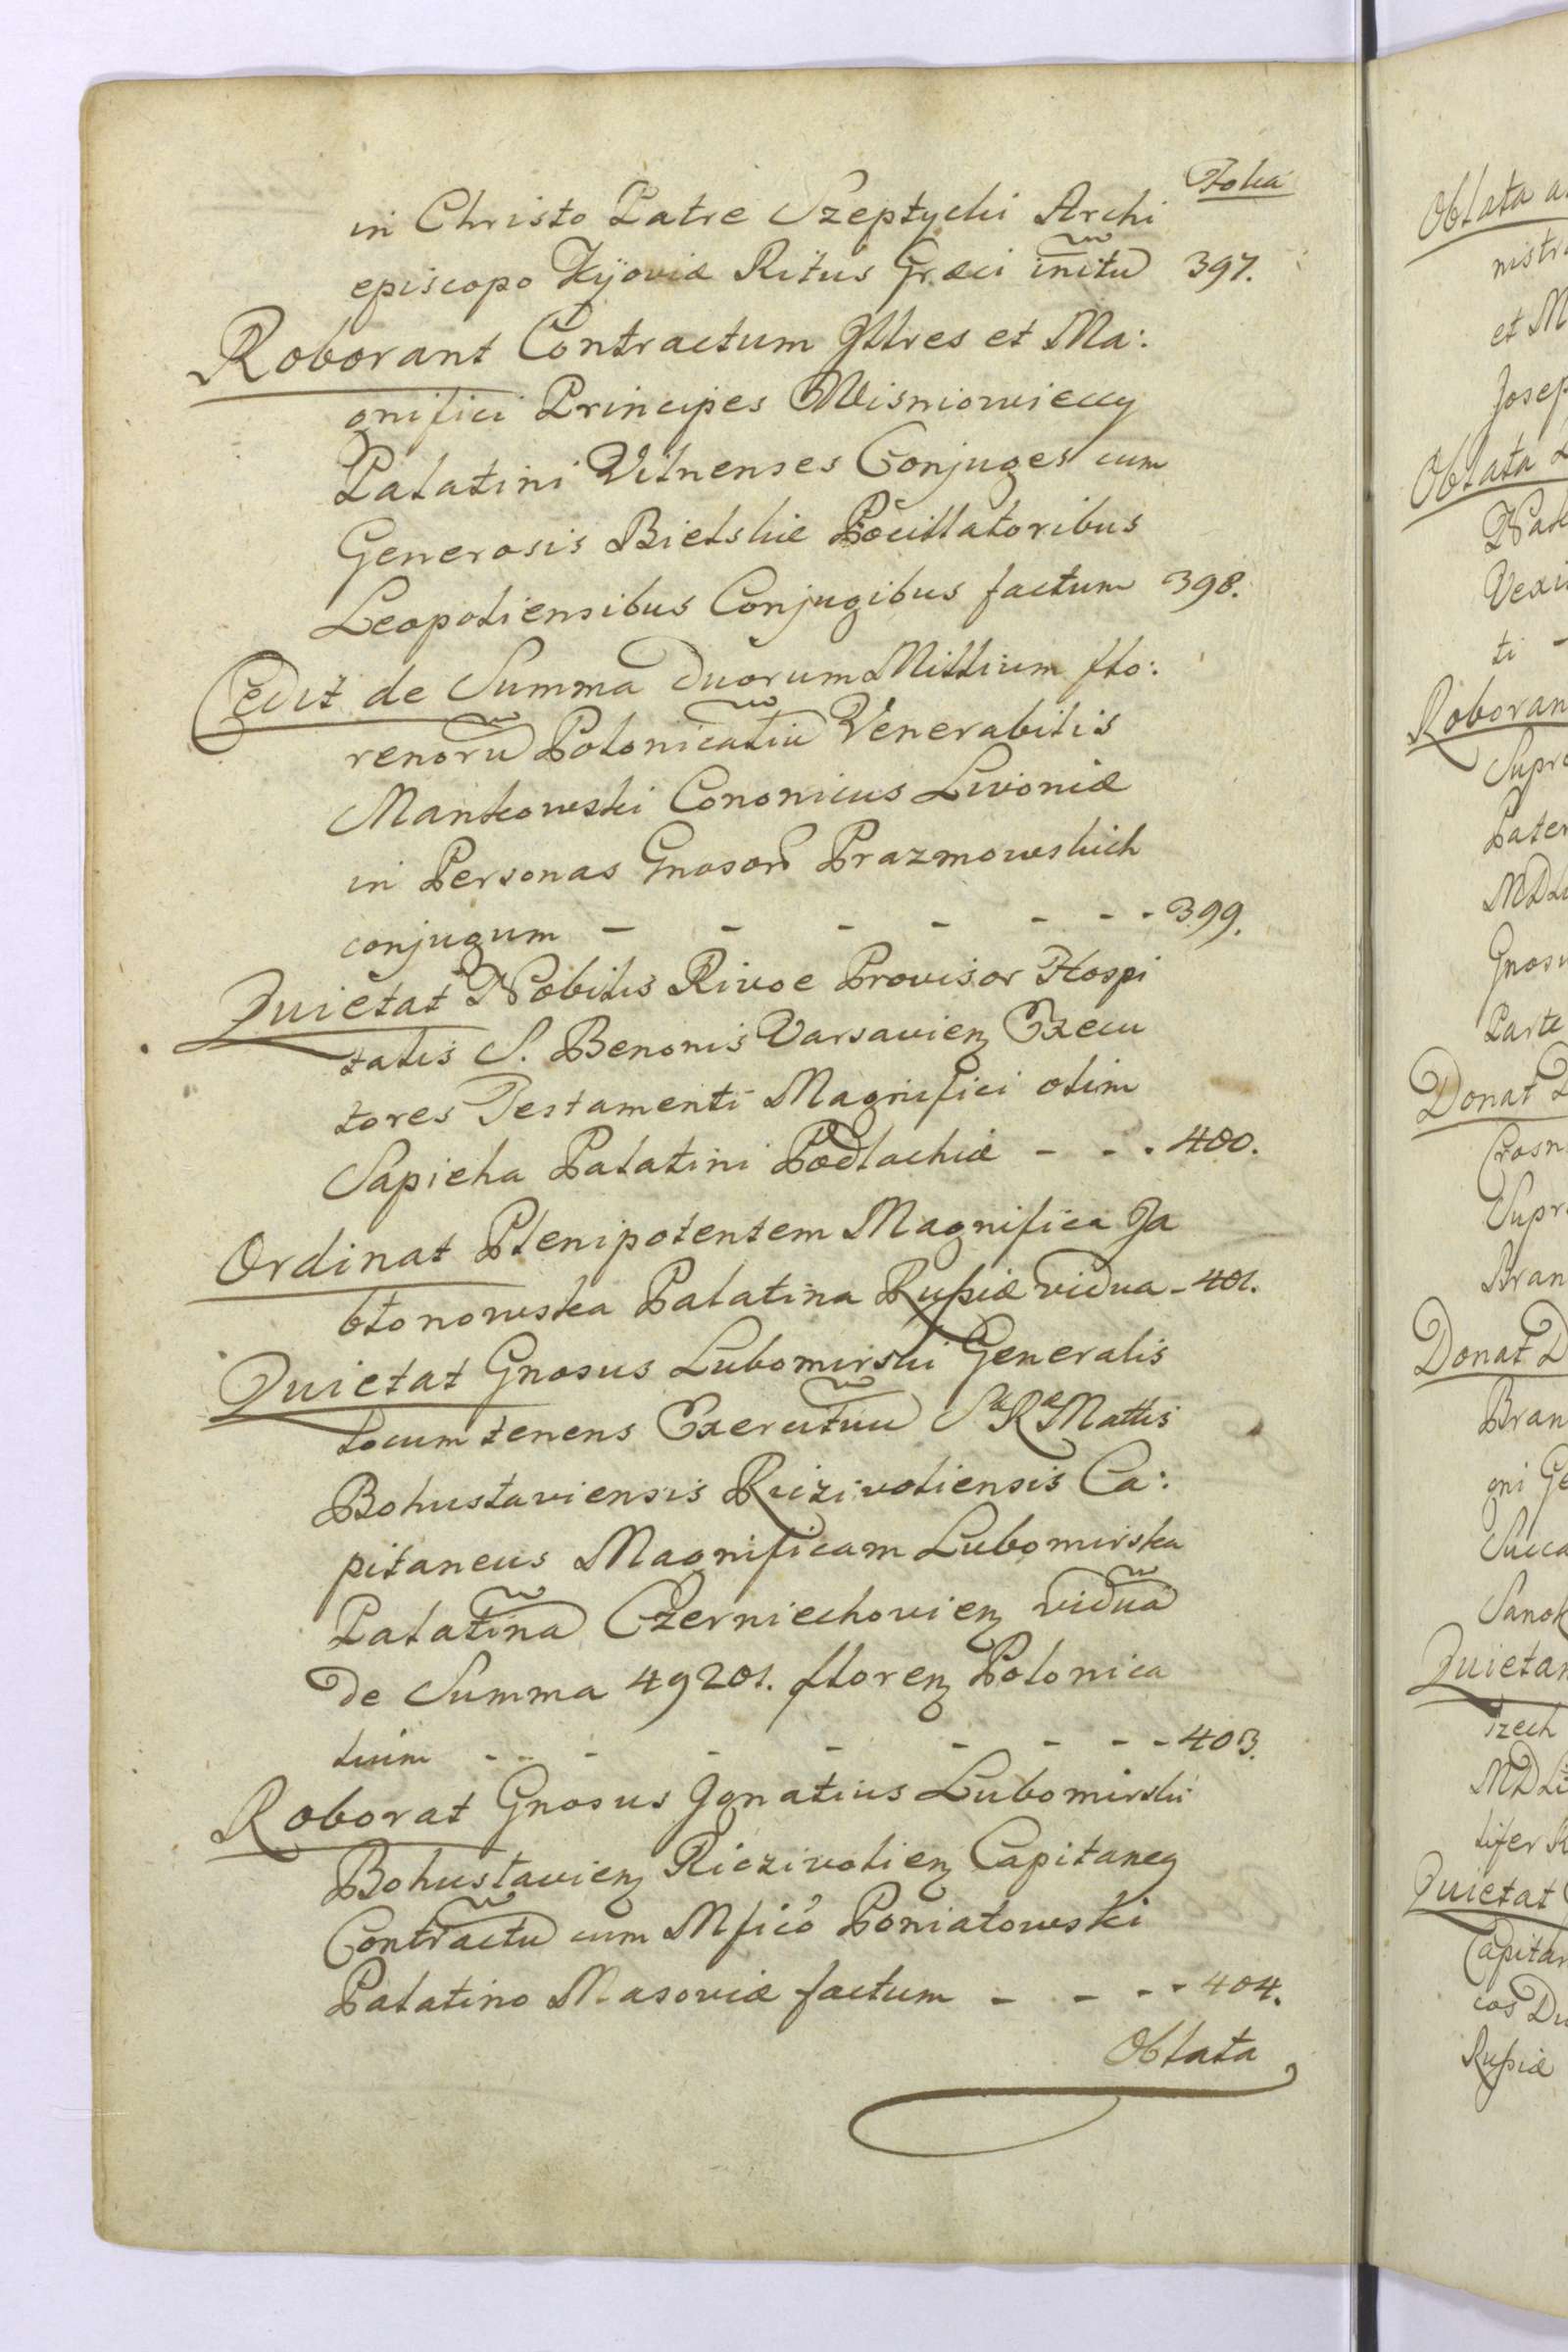 Folia
in Christo Patre Szeptycki Archi
episcopo Kijoviæ Ritus Græci initũ 397.
Roborant Contractum Illres et Ma:
gnifici Principes Wisniowieccy
Palatini Vilnenses Conjuges cum
Generosis Bielskie Pocillatoribus
Leopoliensibus Conjugibus factum 398.
Cedit de Summa Duorum Millium flo:
renorũ Polonicaliũ Venerabilis
Mankowski Cononicus Livoniæ
in Personas Gnosor̃ Prazmowskich
conjugum - - - - - - - 399.
Quietat Nobilis Rivoe Provisor Hospi
talis S. Benonis Varsavien Execu
tores Testamenti Magnifici olim
Sapieha Palatini Podlachiæ - - - 400.
Ordinat Plenipotentem Magnifica Ja
błonowska Palatina Russiæ vidua - 401.
Quietat Gnosus Lubomirski Generalis
locum tenens Exercituũ S R Mattis
Bohuslaviensis Ryczivoliensis Ca:
pitaneus Magnificam Lubomirska
Palatinã Czerniechovien viduã
de Summa 49201. floren Polonica
lium - - - - - - - - 403.
Roborat Gnosus Ignatius Lubomirski
Bohuslavien Riczivolien Capitaneg
Contractũ cum Mfico Poniatowski
Palatino Masoviæ factum - - - - 404.
Oblata
Oblata
nistr
et M
Josep
Oblata
Vexi
ti -
Roboran
Supr
Pater
Parte
Donat
Supr
Bran
Donat D
Bran
gni Ge
Sanok
Quietan
Quietat
Capitan
cos Du
Russiæ